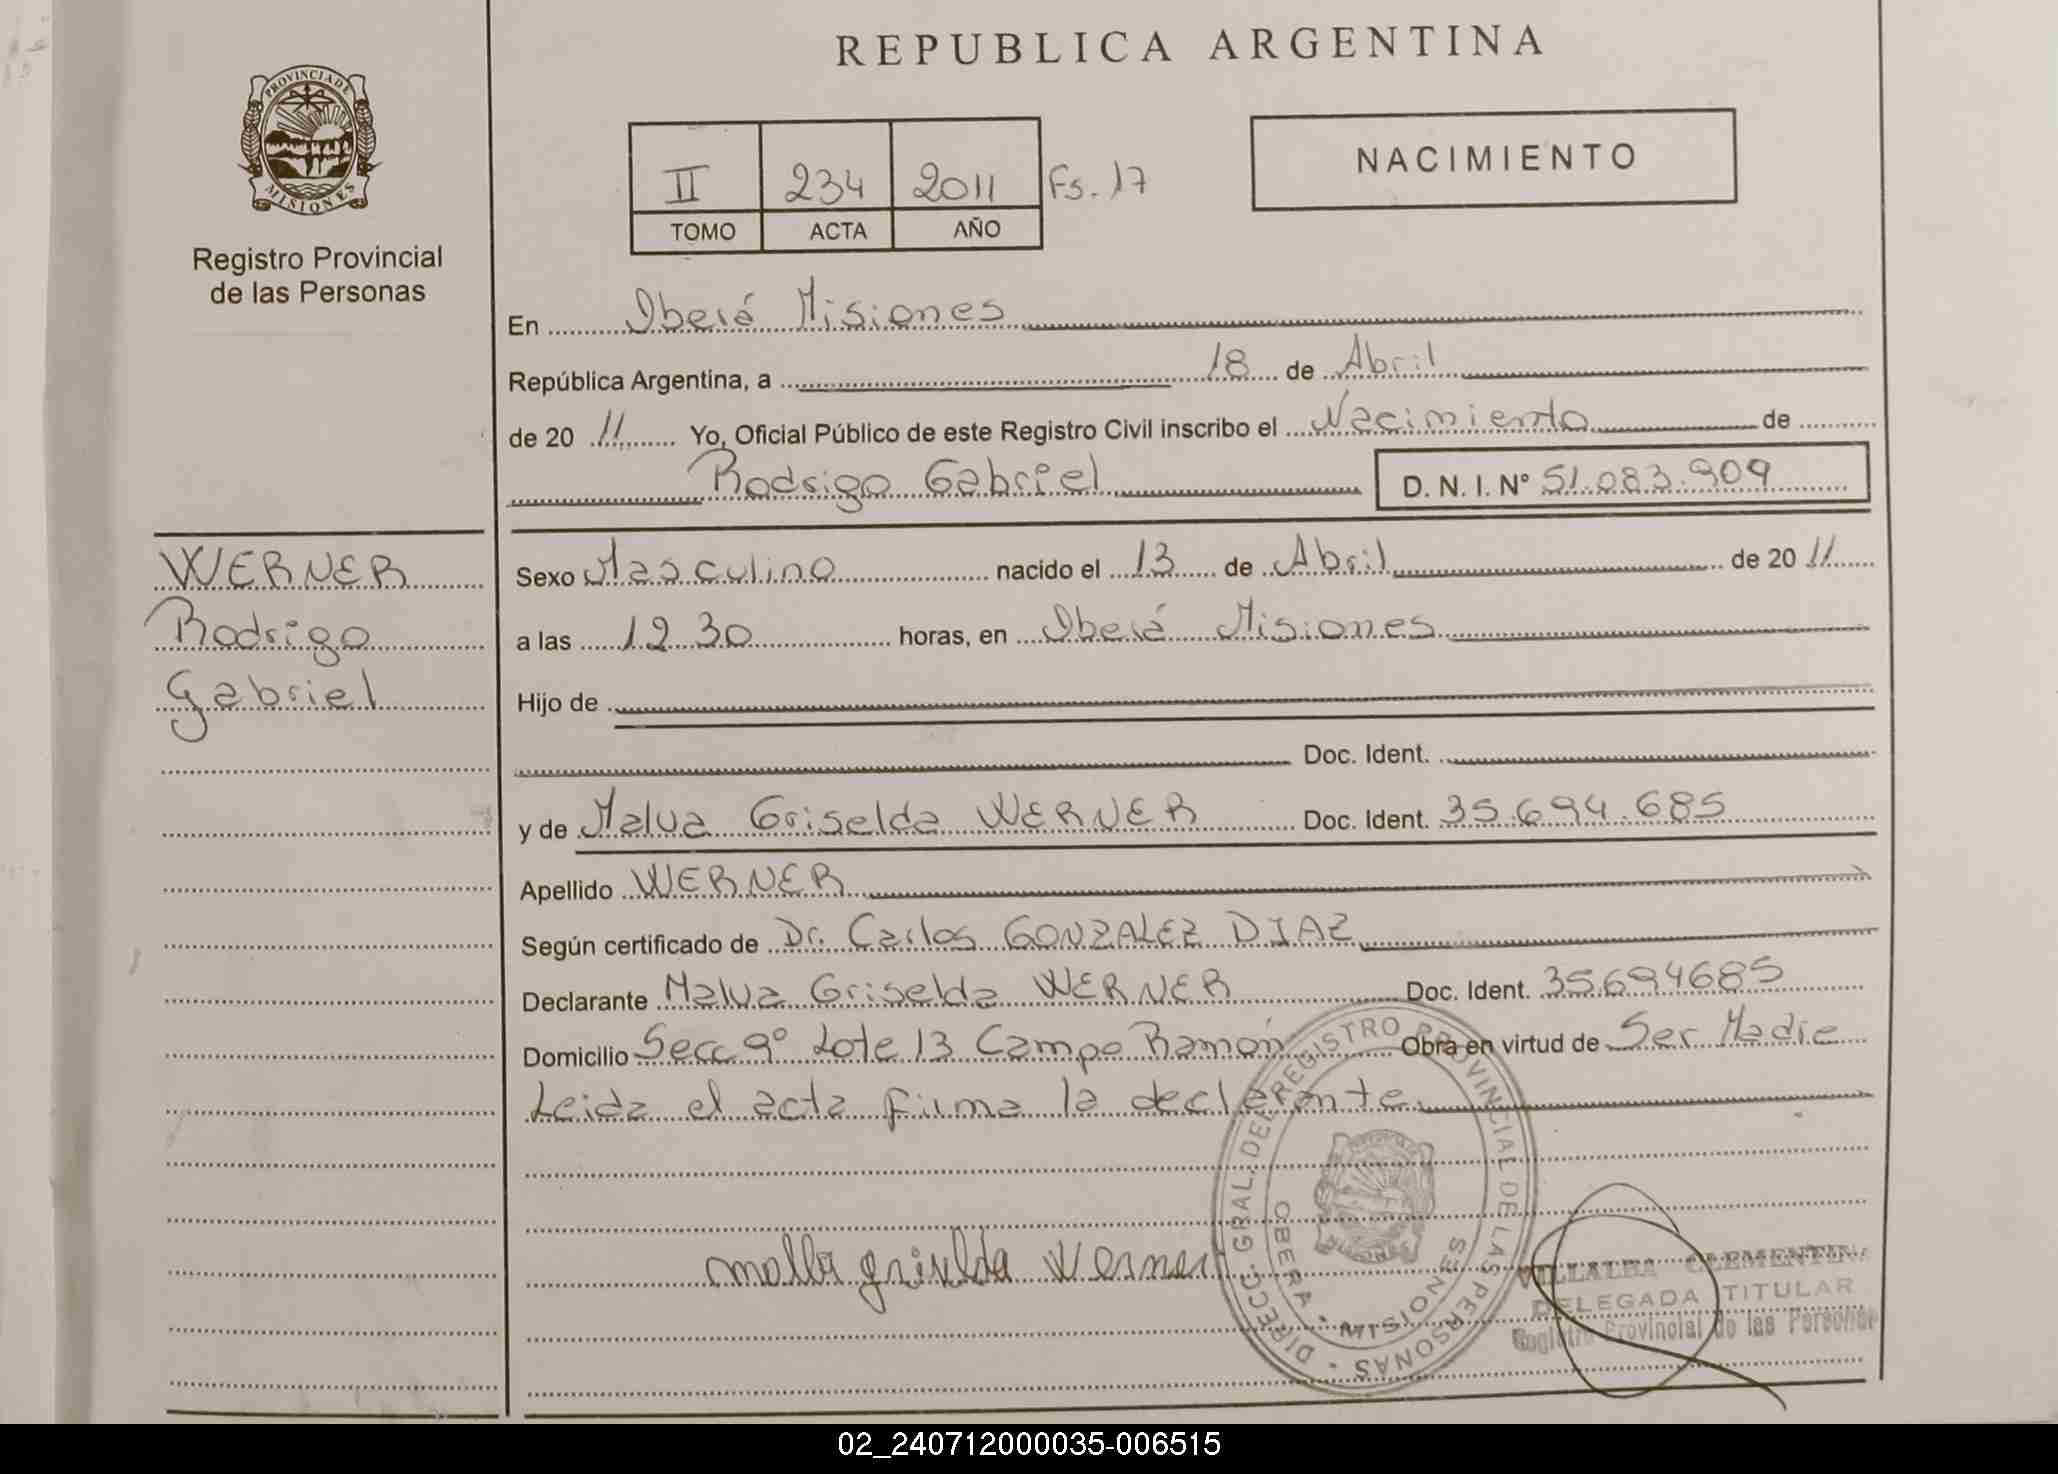 REPUBLICA ARGENTINA
PROVINCIA DE MISIONES
Registro Provincial
de las Personas
II 234 2011 Fs. 17
TOMO ACTA AÑO
NACIMIENTO
En Oberá Misiones
República Argentina, a 18 de Abril
de 20 11 Yo, Oficial Público de este Registro Civil inscribo el Nacimiento de
Rodrigo Gabriel D. N. I. Nº 51.083.909
WERNER
Rodrigo
Gabriel
Sexo Masculino nacido el 13 de Abril de 20 11
a las 12 30 horas, en Oberá Misiones
Hijo de
Doc. Ident.
y de Malva Griselda WERNER Doc. Ident. 35.694.685
Apellido WERNER
Según certificado de Dr. Carlos GONZALEZ DIAZ
Declarante Malva Griselda WERNER Doc. Ident. 35694685
Domicilio Secc 9º Lote 13 Campo Ramón Obra en virtud de Ser Madre
Leida el acta firma la declarante.
Werner
DIRECC. GRAL. DEL REGISTRO PROVINCIAL DE LAS PERSONAS
OBERA - MISIONES
VILLALBA CLEMENTINA
DELEGADA TITULAR
Registro Provincial de las Personas
02_240712000035-006515